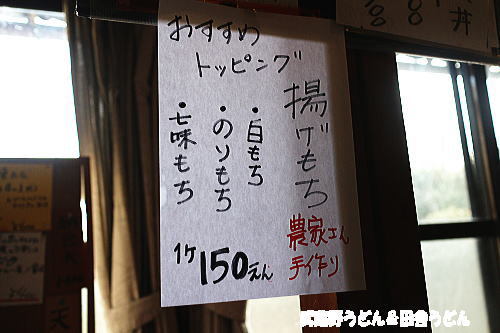 おすすめ
トッピング
揚げもち
・白もち
・のりもち
・七味もち
農家さん
手作り
1ケ150えん
丼
武蔵野うどん&田舎うどん